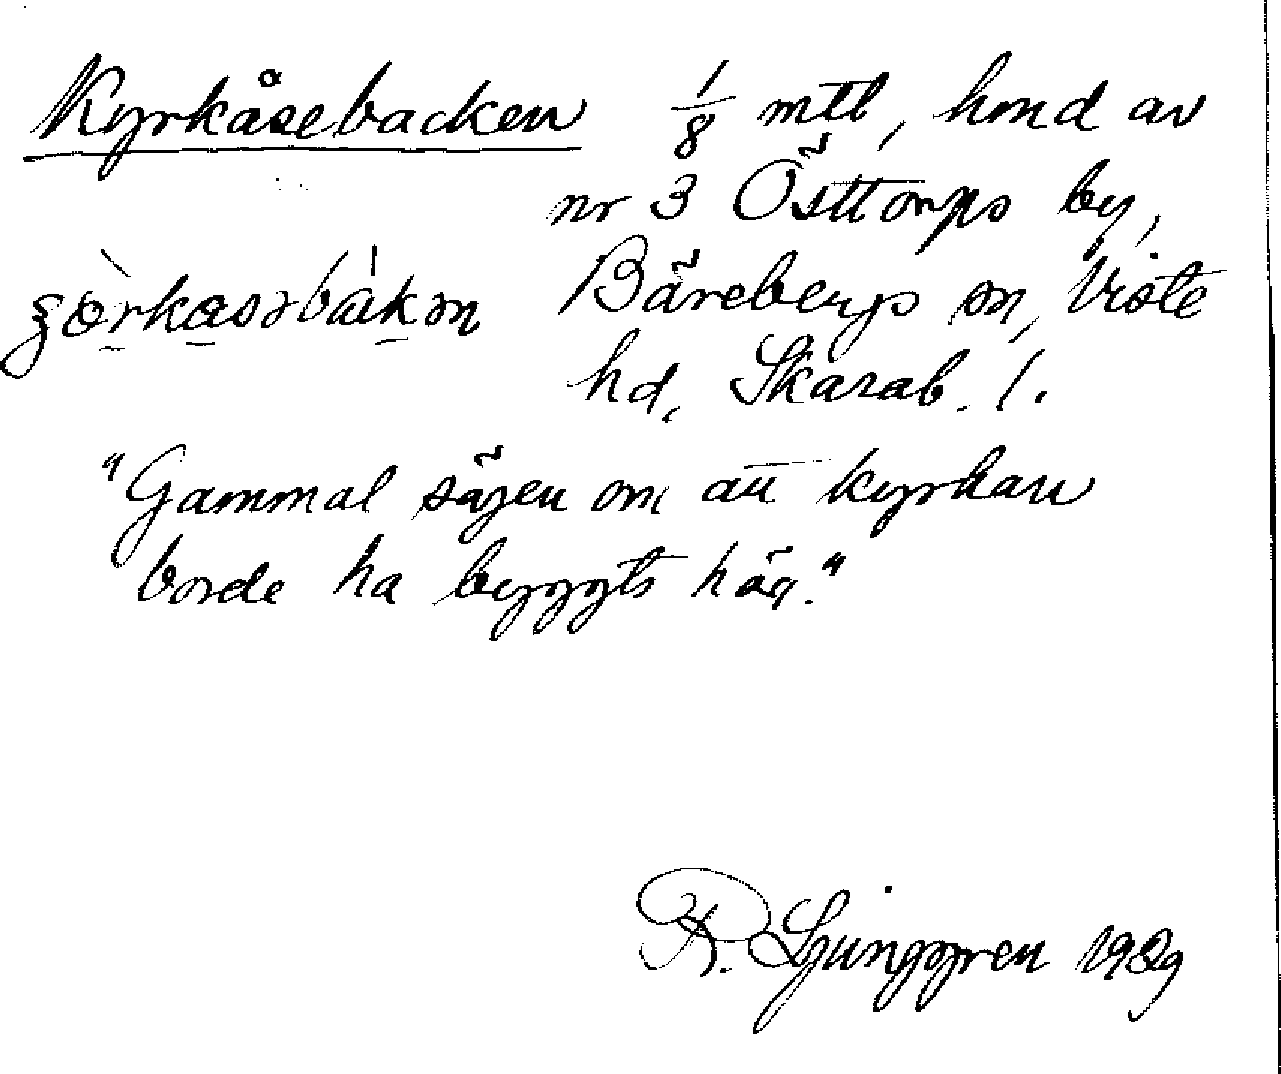 Kyrkåsebacken 1/8 mtl, hmd av
nr 3 Östtorps by,
Bärebergs sn, Viste
hd, Skarab. l.
"Gammal sägen om att kyrkan
borde ha byggts här."
R. Ljunggren 1989